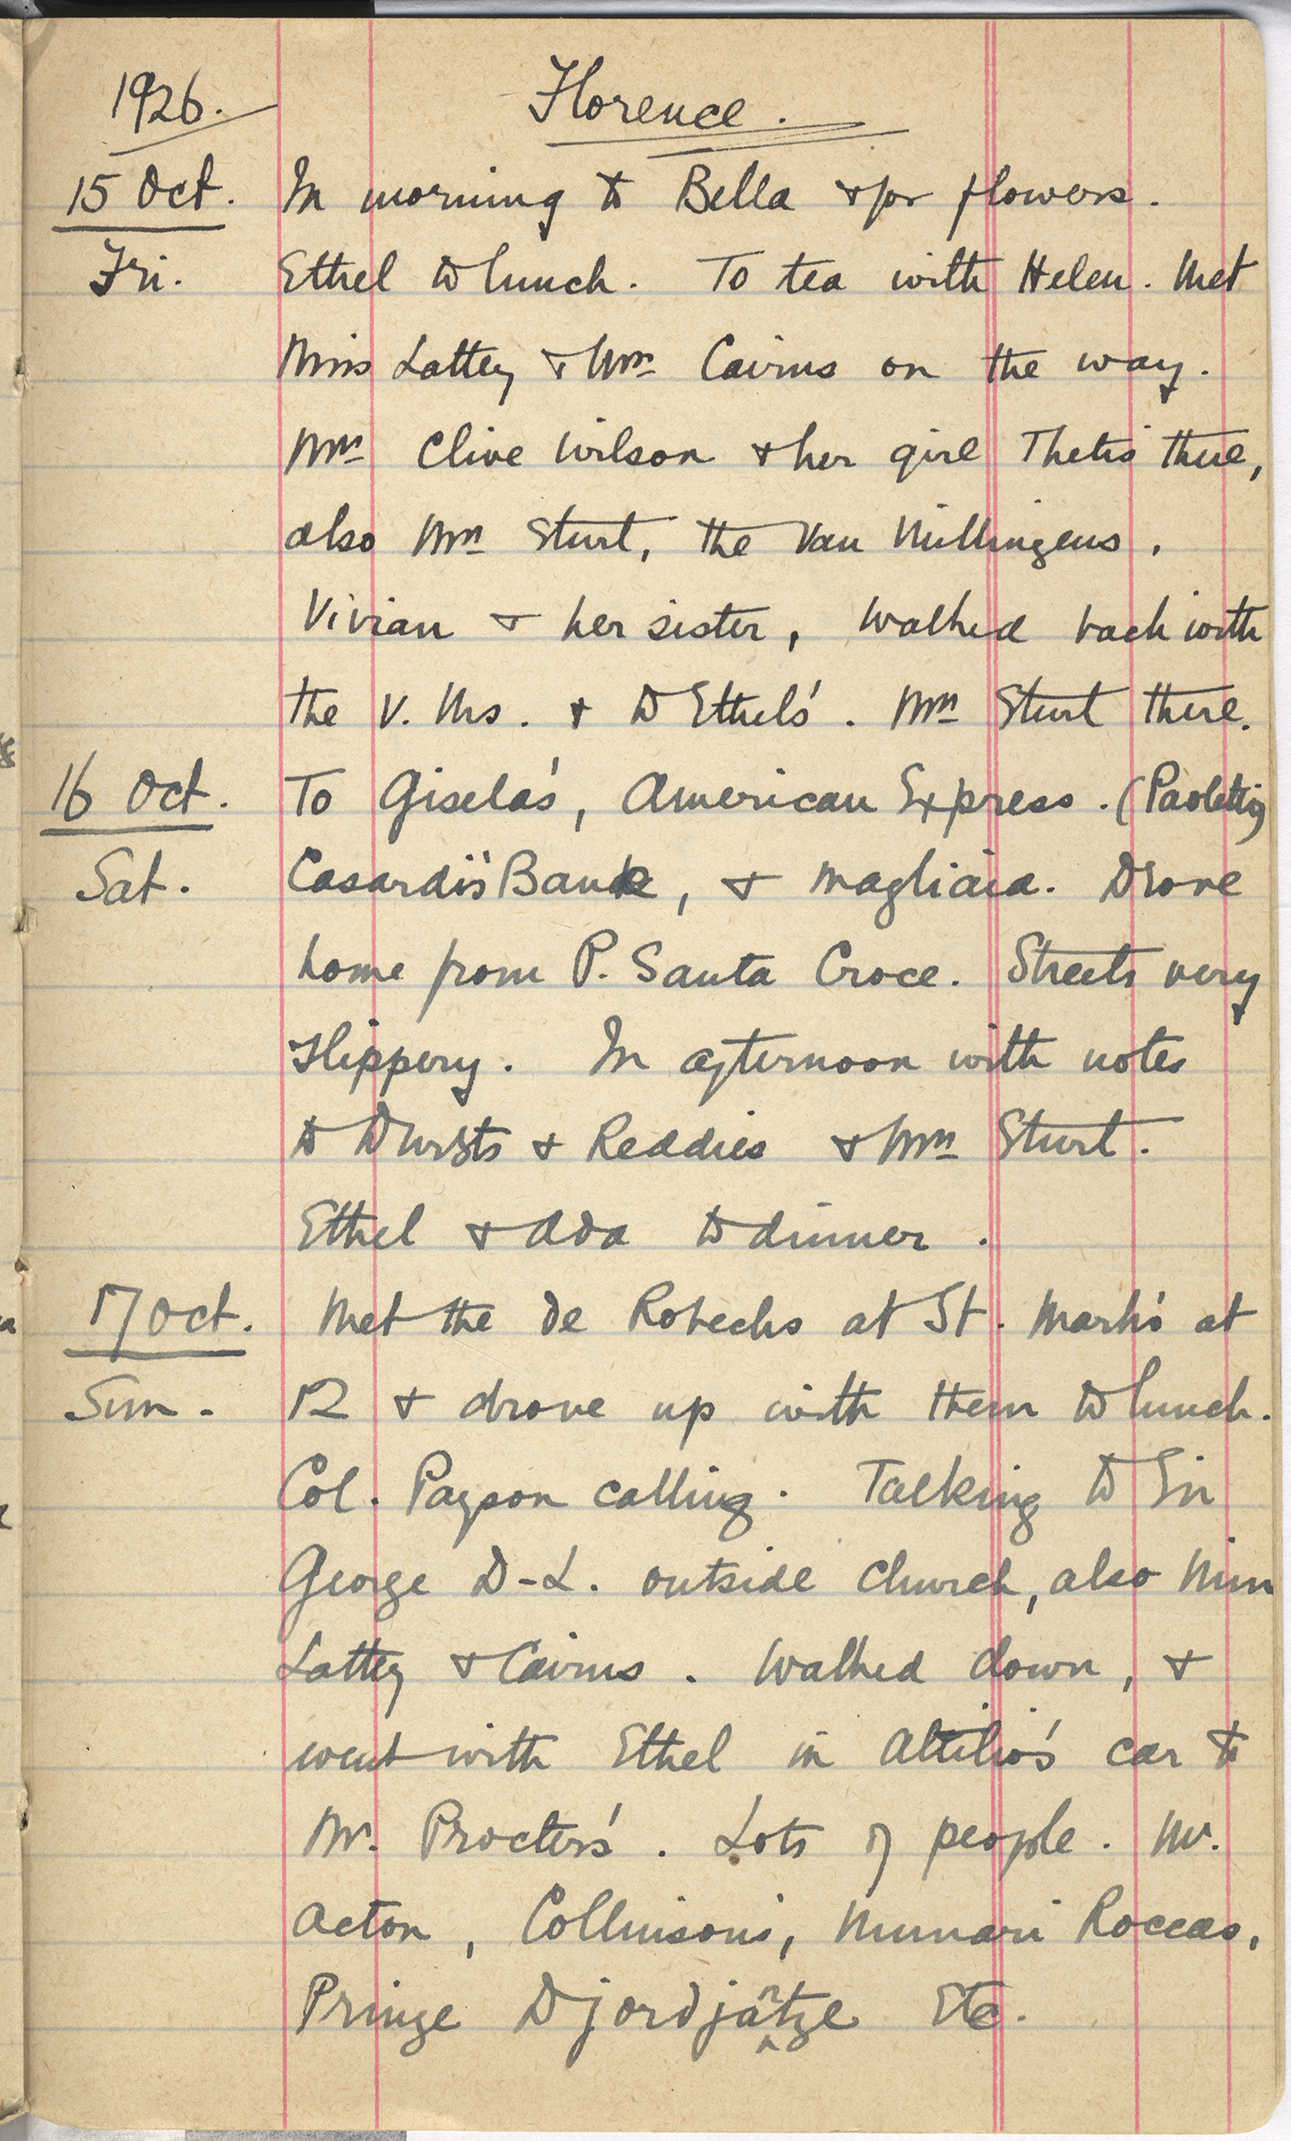 1926. Florence.
15 Oct. In morning to Bella & for flowers.
Fri. Ethel to lunch. To tea with Helen. Met
Miss Lattey & Mrs Cairns on the way.
Mrs Clive Wilson & her girl Thetis there,
also Mrs Sturt, the Van Millingens.
Vivian & her sister, walked back with
the V. Ms. & to Ethel's. Mrs Sturt there.
16 Oct. To Gisela's, American Express. (Paoletti)
Sat. Casardi's Bank, & Magliaia. Drove
home from P. Santa Croce. Streets very
slippery. In afternoon with notes
to Dursts & Reddies & Mrs Sturt.
Ethel & Ada to dinner.
17 Oct. Met the de Robecks at St. Mark's at
Sun. 12 & drove up with them to lunch.
Col. Payson calling. Talking to Sir
George D-L. outside church, also Miss
Lattey & Cairns. Walked down, &
went with Ethel in Attilio's car to
Mr. Procter's. Lots of people. Mr.
Acton, Collinsons, Munari Roccas,
Prinze Djordjantze Etc.